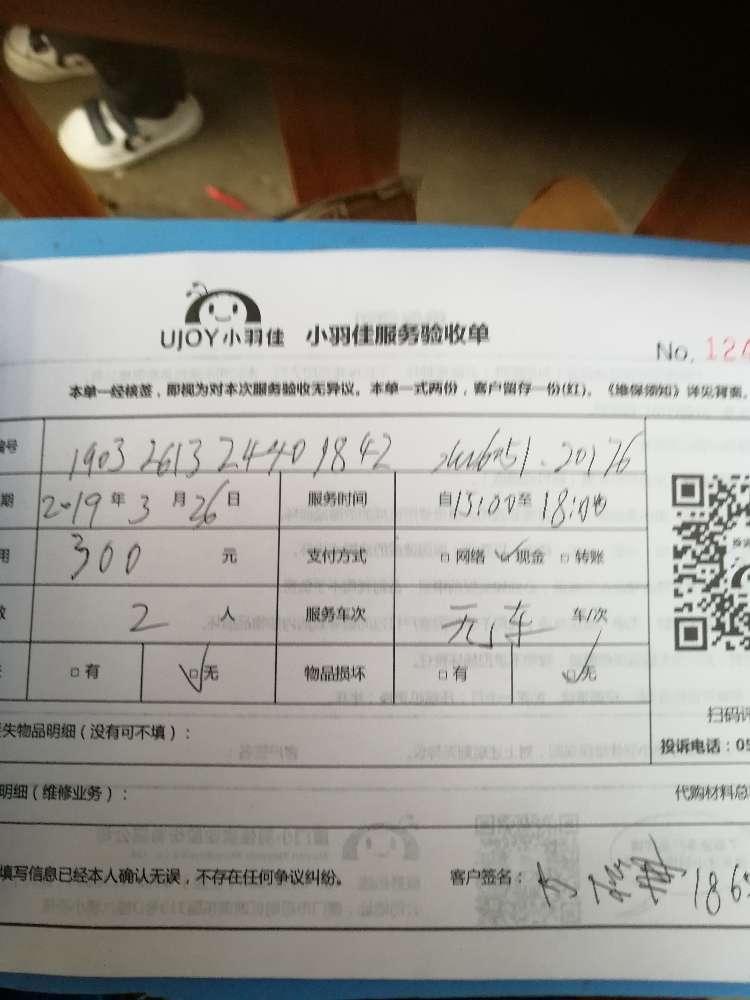 UJOY小羽佳 小羽佳服务验收单
No. 124
本单一经核签,即视为对本次服务验收无异议。本单一式两份,客户留存一份(红)。《维保须知》详见背面。
编号 1903 2613 24401842
期 2019年3月26日 服务时间 自13:00至18:00
用 300 元 支付方式 网络 现金 转账
数 2 人 服务车次 无车 车/次
有 无 物品损坏 有 无
失物品明细(没有可不填):
扫码评
投诉电话:05
明细(维修业务): 代购材料总
填写信息已经本人确认无误,不存在任何争议纠纷。 客户签名: 186